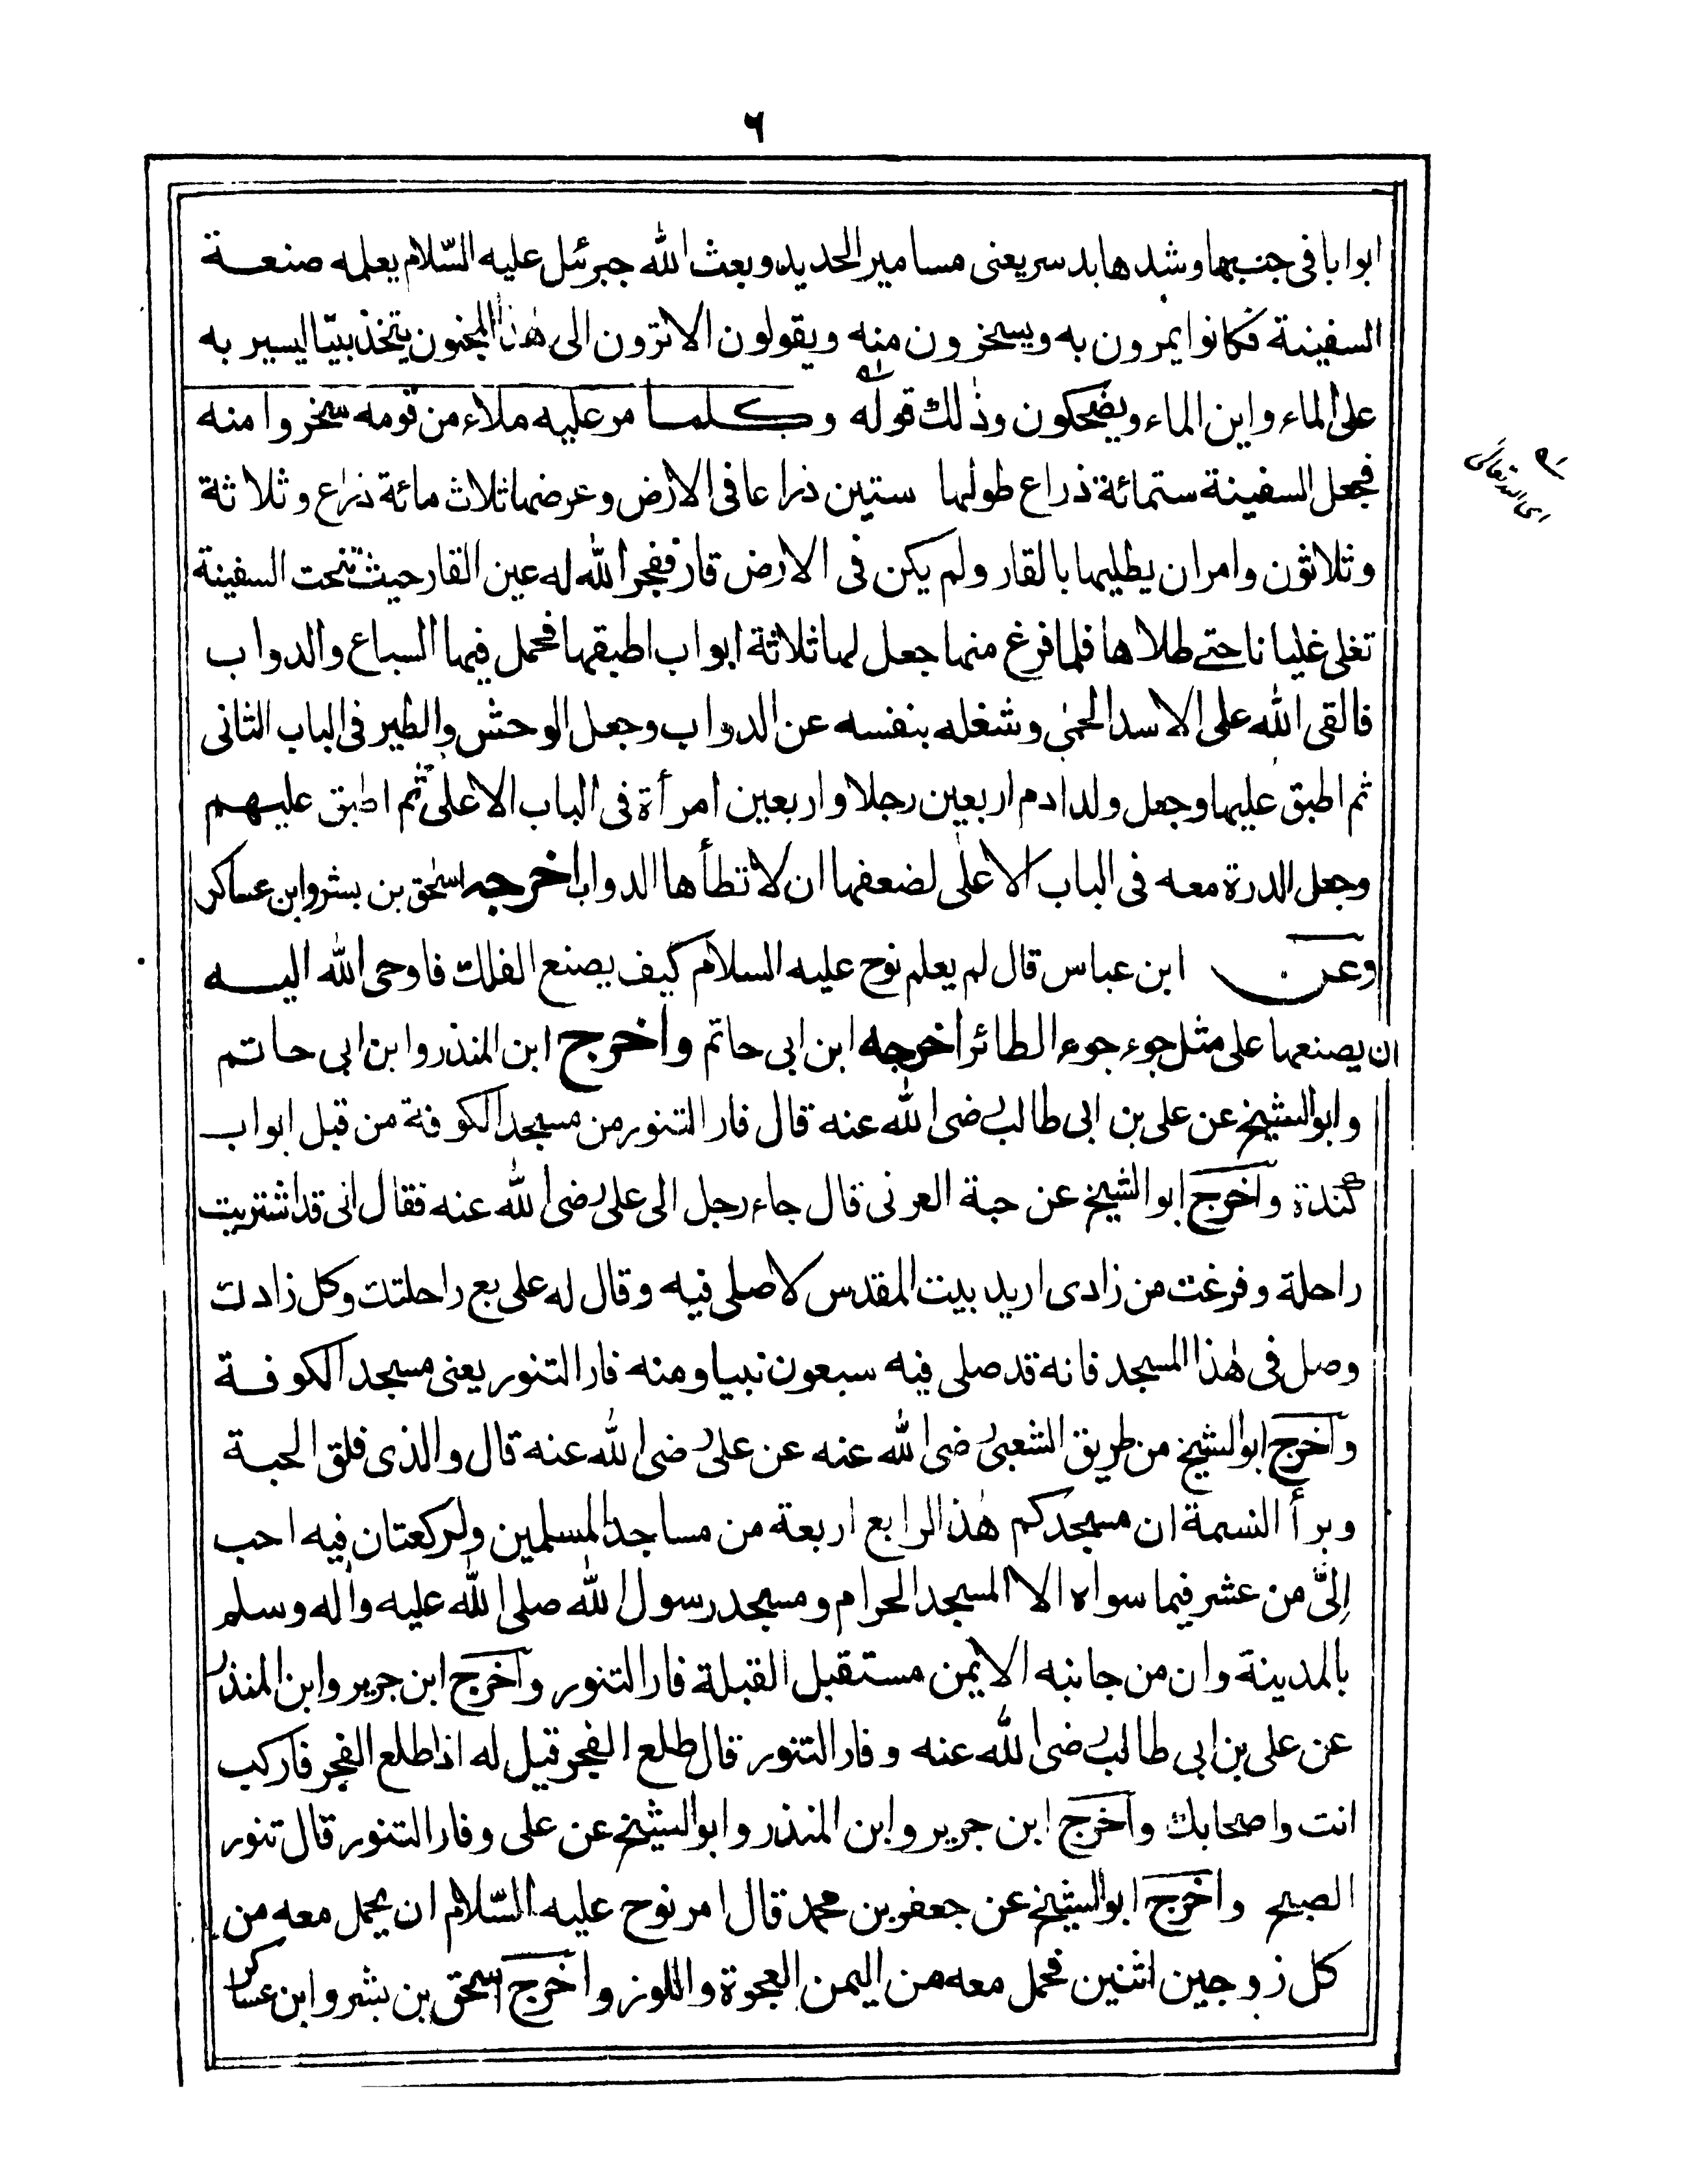 ٦
ابوابا فى جنبيها وشدها بدسر يعنى مسامير الحديد وبعث الله جبرئيل عليه السّلام يعلمه صنعة
السفينة فكانوا يمرون به ويسخرون منه ويقولون الا ترون الى هٰذا المجنون يتخذ بيتا ليسير به
على الماء واين الماء ويضحكون وذٰلك قوله وكلما مر عليه ملاء من قومه سخروا منه
فجعل السفينة ستمائة ذراع طولها ستين ذراعا فى الارض وعرضها ثلاث مائة ذراع وثلاثة
وثلاثون وامر ان يطليها بالقار ولم يكن فى الارض قار ففجر الله له عين القار حيث تنحت السفينة
تغلى غليانا حتے طلاها فلما فرغ منها جعل لها ثلاثة ابواب اطبقها فحمل فيها السباع والدواب
فالقى الله على الاسد الحمٰى وشغله بنفسه عن الدواب وجعل الوحش والطير فى الباب الثانى
ثم اطبق عليها وجعل ولد ادم اربعين رجلا واربعين امرأة فى الباب الاعلى ثم اطبق عليهم
وجعل الدرة معه فى الباب الاعلٰى لضعفها ان لا تطأها الدواب اخرجه اسحٰق بن بشر وابن عساكر
وعن ابن عباس قال لم يعلم نوح عليه السلام كيف يصنع الفلك فاوحى الله اليه
ان يصنعها على مثل جوء جوء الطائر اخرجه ابن ابى حاتم واخرج ابن المنذر وابن ابى حاتم
وابو الشيخ عن على بن ابى طالب رضى الله عنه قال فار التنور من مسجد الكوفة من قبل ابواب
كندة واخرج ابو الشيخ عن حبة العرنى قال جاء رجل الى على رضى الله عنه فقال انى قد اشتريت
راحلة وفرغت من زادى اريد بيت المقدس لاصلى فيه وقال له على بع راحلتك وكل زادك
وصل فى هٰذا المسجد فانه قد صلى فيه سبعون نبيا ومنه فار التنور يعنى مسجد الكوفة
واخرج ابو الشيخ من طريق الشعبى رضى الله عنه عن على رضى الله عنه قال والذى فلق الحبة
وبرأ النسمة ان مسجدكم هٰذا لرابع اربعة من مساجد المسلمين ولركعتان فيه احب
اِلىَّ من عشر فيما سواه الا المسجد الحرام ومسجد رسول الله صلى الله عليه واٰله وسلم
بالمدينة وان من جانبه الايمن مستقبل القبلة فار التنور واخرج ابن جرير وابن المنذر
عن على بن ابى طالب رضى الله عنه وفار التنور قال طلع الفجر قيل له اذا طلع الفجر فاركب
انت واصحابك واخرج ابن جرير وابن المنذر وابو الشيخ عن على وفار التنور قال تنور
الصبح واخرج ابو الشيخ عن جعفر بن محمد قال امر نوح عليه السّلام ان يحمل معه من
كل زوجين اثنين فحمل معه من اليمن العجوة واللوز واخرج اسحٰق بن بشر وابن عساكر